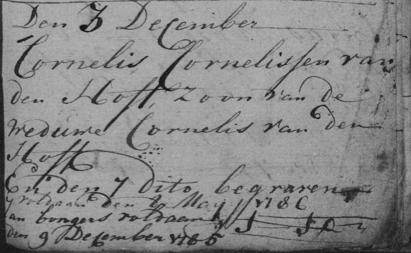 Den 3 December
Cornelis Cornelissen van
den Hoff zoon van de
weduwe Cornelis van den
Hoff
En den 7 dito begraven
voldaan den 2 May 1786
an bongers voldaan
den 9 December 1785